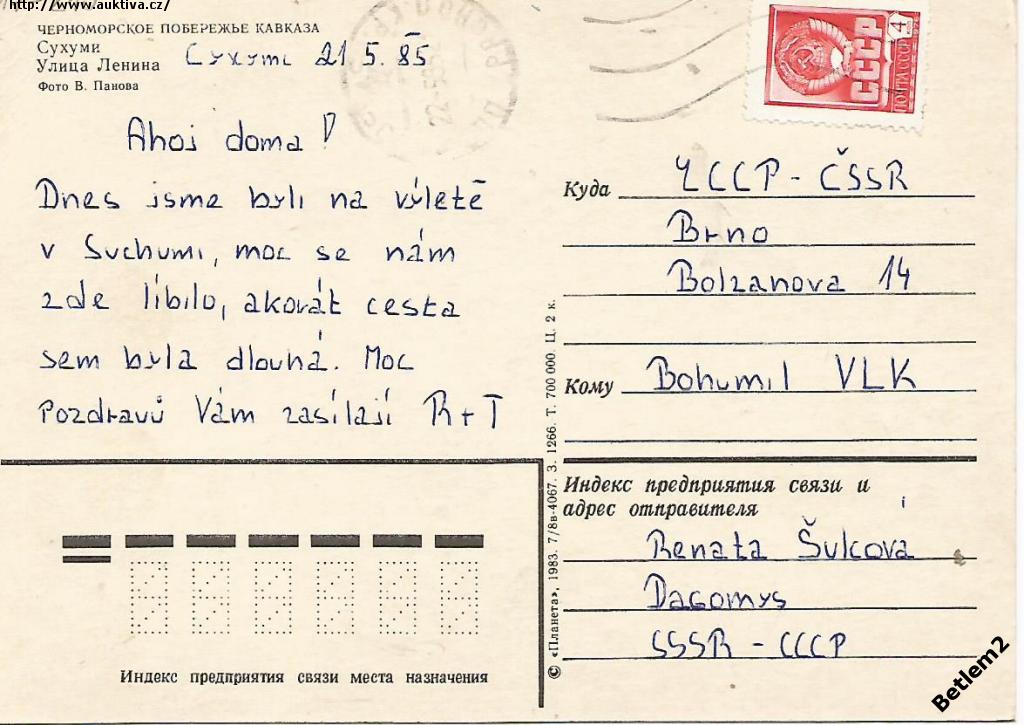 http://www.auktiva.cz/
ЧЕРНОМОРСКОЕ ПОБЕРЕЖЬЕ КАВКАЗА
Сухуми
Улица Ленина
Фото В. Панова
Сухуми 21.5.85
Ahoj doma!
Dnes jsme byli na výletě
v Suchumi, moc se nám
zde líbilo, akorát cesta
sem byla dlouhá. Moc
pozdravů Vám zasílají R+T
4
СССР
ПОЧТА СССР
Куда ЧССР - ČSSR
Brno
Bolzanova 14
Кому Bohumil VLK
Индекс предприятия связи и
адрес отправителя
Renata Šulcová
Dagomys
SSSR - СССР
Индекс предприятия связи места назначения
© «Планета», 1983. 7/8в-4067. З. 1266. Т. 700 000. Ц. 2 к.
Betlem2